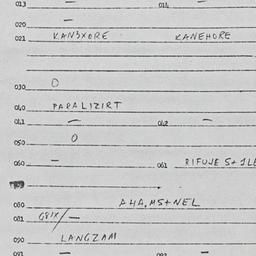 013 — 014 —
020 —
021 KANSXORE KANEHORE
030 O
040 PARALIZIRT
041 — 042 —
050 O
060 — 061 RIFUJE S+1LE
080 AHA,MS+NEL
081 GRIX/—
090 LANGZAM
091 — 092 —